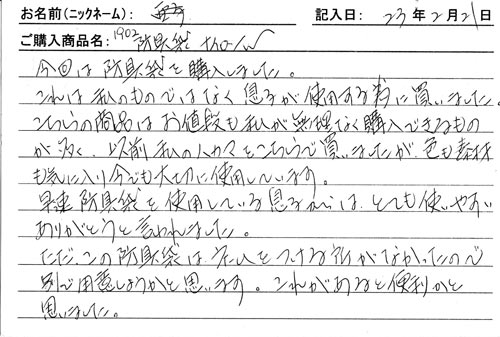 お名前(ニックネーム): 記入日: 23年2月21日
ご購入商品名: 1902 防具袋 ナイロン
今回は防具袋を購入しました。
これは私のものではなく息子が使用する為に買いました。
こちらの商品はお値段も私が無理なく購入できるもの
が多く、以前私のハカマをこちらで買いましたが、色も素材
も気に入り今でも大切に使用しています。
早速防具袋を使用している息子からは、とても使いやすい
ありがとうと言われました。
ただ、この防具袋は名札をつける所がなかったので
別で用意しようかと思います。これがあると便利かと
思いました。